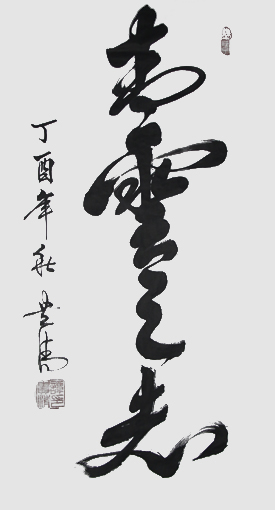 青雲之志
丁酉年秋